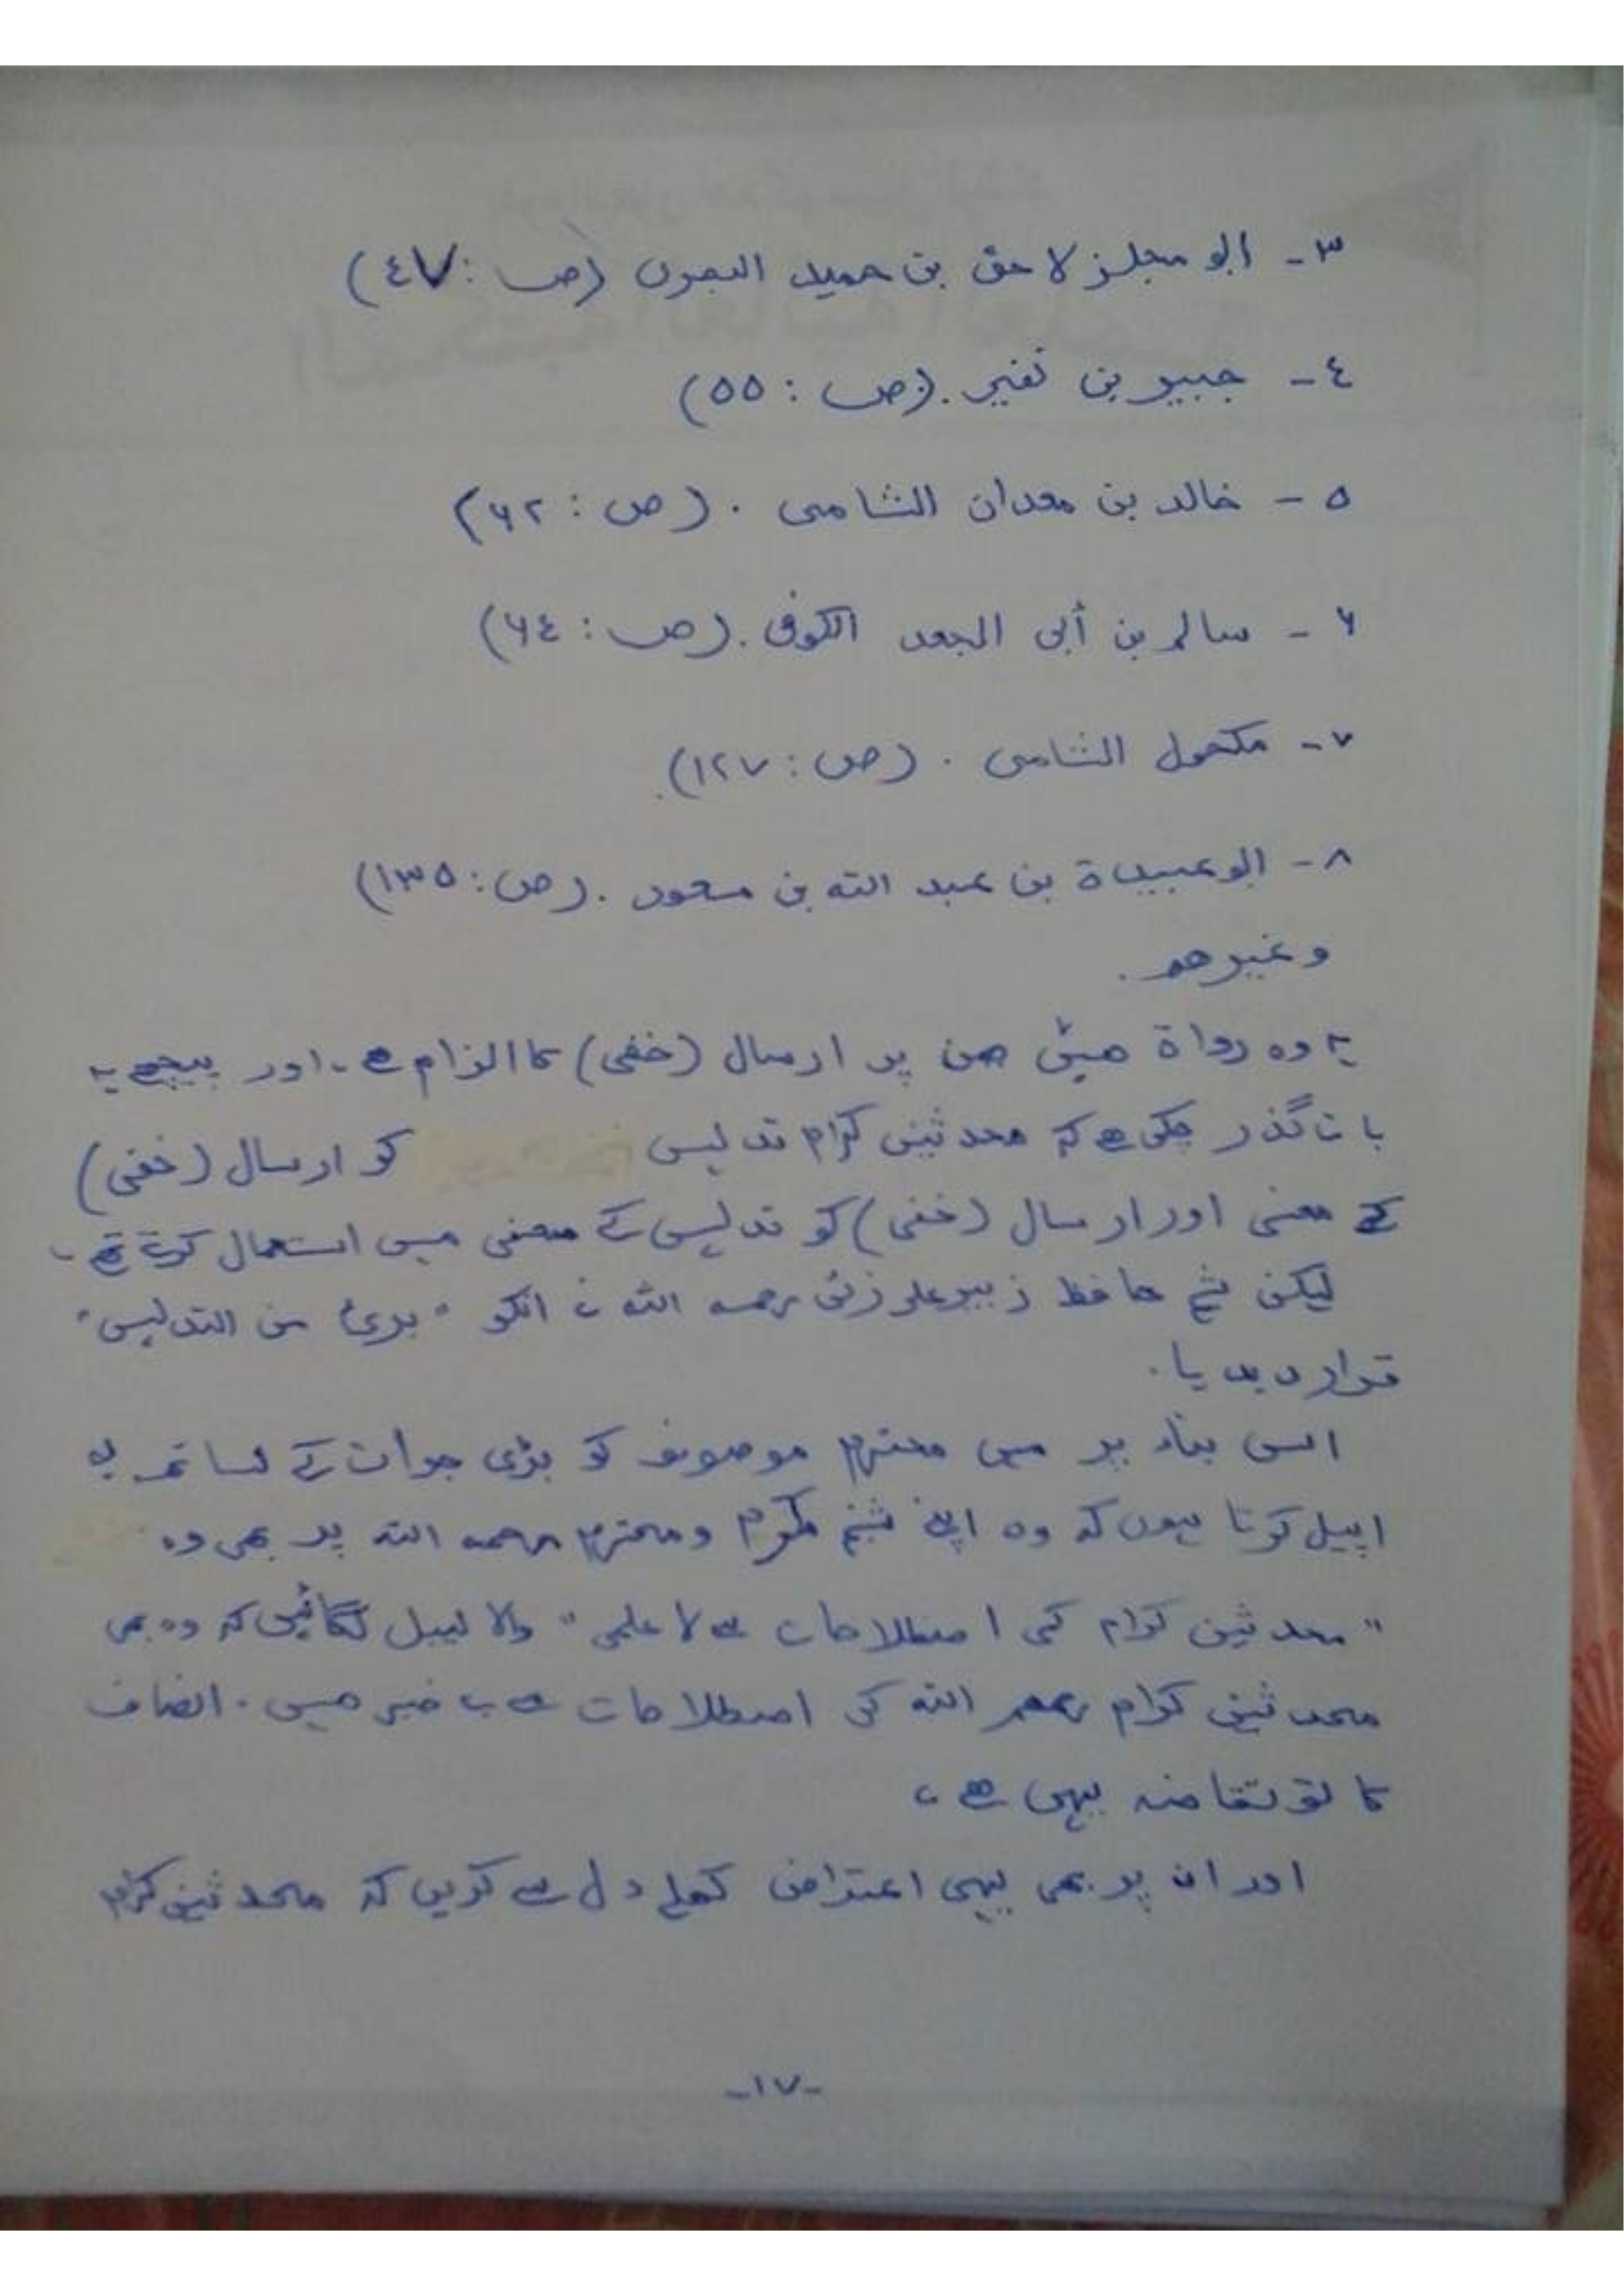 ٣- ابو مجلز لاحق بن حميد البصرى (ص: ٤٧)
٤- جبير بن نفير. (ص: ٥٥)
٥- خالد بن معدان الشامى. (ص: ۶۲)
۶- سالم بن أبى الجعد الكوفى. (ص: ۶٤)
٧- مكحول الشامى. (ص: ١٢٧)
٨- ابوعبيدة بن عبد الله بن مسعود. (ص: ١٣٥)
وغيرهم.
یہ وہ رواۃ ھیں جن پر ارسال (خفی) کا الزام ھے۔ اور پیچھے یہ
بات گذر چکی ھے کہ محدثین کرام تدلیس کو ارسال (خفی)
کے معنی اور ارسال (خفی) کو تدلیس کے معنی میں استعمال کرتے تھے۔
لیکن شیخ حافظ زبیر علی زئی رحمہ اللہ نے انکو "بریٔ من التدلیس"
قرار دیدیا۔
اسی بناء پر میں محترم موصوف کو بڑی جرأت کے ساتھ یہ
اپیل کرتا ہوں کہ وہ اپنے شیخ مکرم ومحترم رحمہ اللہ پر بھی وہ
"محدثین کرام کی اصطلاحات سے لا علمی" والا لیبل لگائیں کہ وہ بھی
محدثین کرام رحمهم اللہ کی اصطلاحات سے بے خبر ھیں۔ انصاف
کا تو تقاضہ یہی ھے،
اور ان پر بھی یہی اعتراض کھلے دل سے کریں کہ محدثین کرام
-١٧-